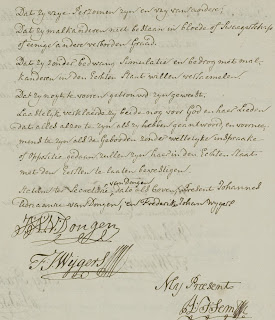 Dat zy vrye Persoonen zyn en vry van andere;
Dat zy malkanderen niet bestaan in bloede of Swagerschap
of eenige andere verboden Graad.
Dat zy zonder bedwang Simulatie en bedrog met mal-
kanderen in den Echten Staat willen versamelen.
Dat zy noyt te voren getrouwd zyn geweest.
Laastelyk verklaarde zy beide nog voor God en haar Lieden
dat alles alzoo te zyn als zy hebben geantwoord, en voorne-
mens te zyn als de Geboden zonder wettelyke
of Oppositie gedaan zullen zyn haar in den Echten Staat
met den Eersten te laaten bevestigen.
Actum ter Secretarie, dato als boven, present Johannes
Adriaanse van Dongen, en Frederik Johan Wygers
van Dongen
F. J. Wygers
My Præsent